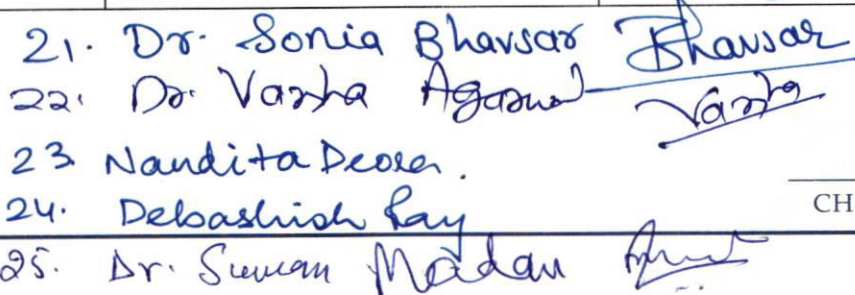 21. Dr. Sonia Bhavsar Bhavsar
22. Dr. Varsha Agarwal Varsha
23 Nandita Deora.
24. Debashish Ray
CH
25. Dr. Suman Madan